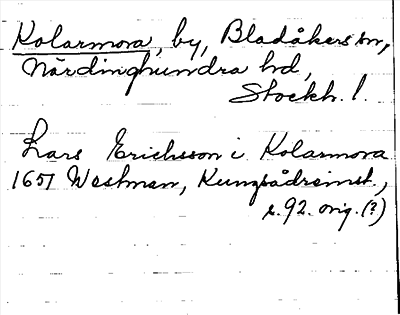 Kolarmora, by, Bladåkers sn,
Närdinghundra hd,
Stockh. l.
Lars Erichsson i Kolarmora
1651 Westman, Kungsådreinst.,
s. 92. orig. (?)